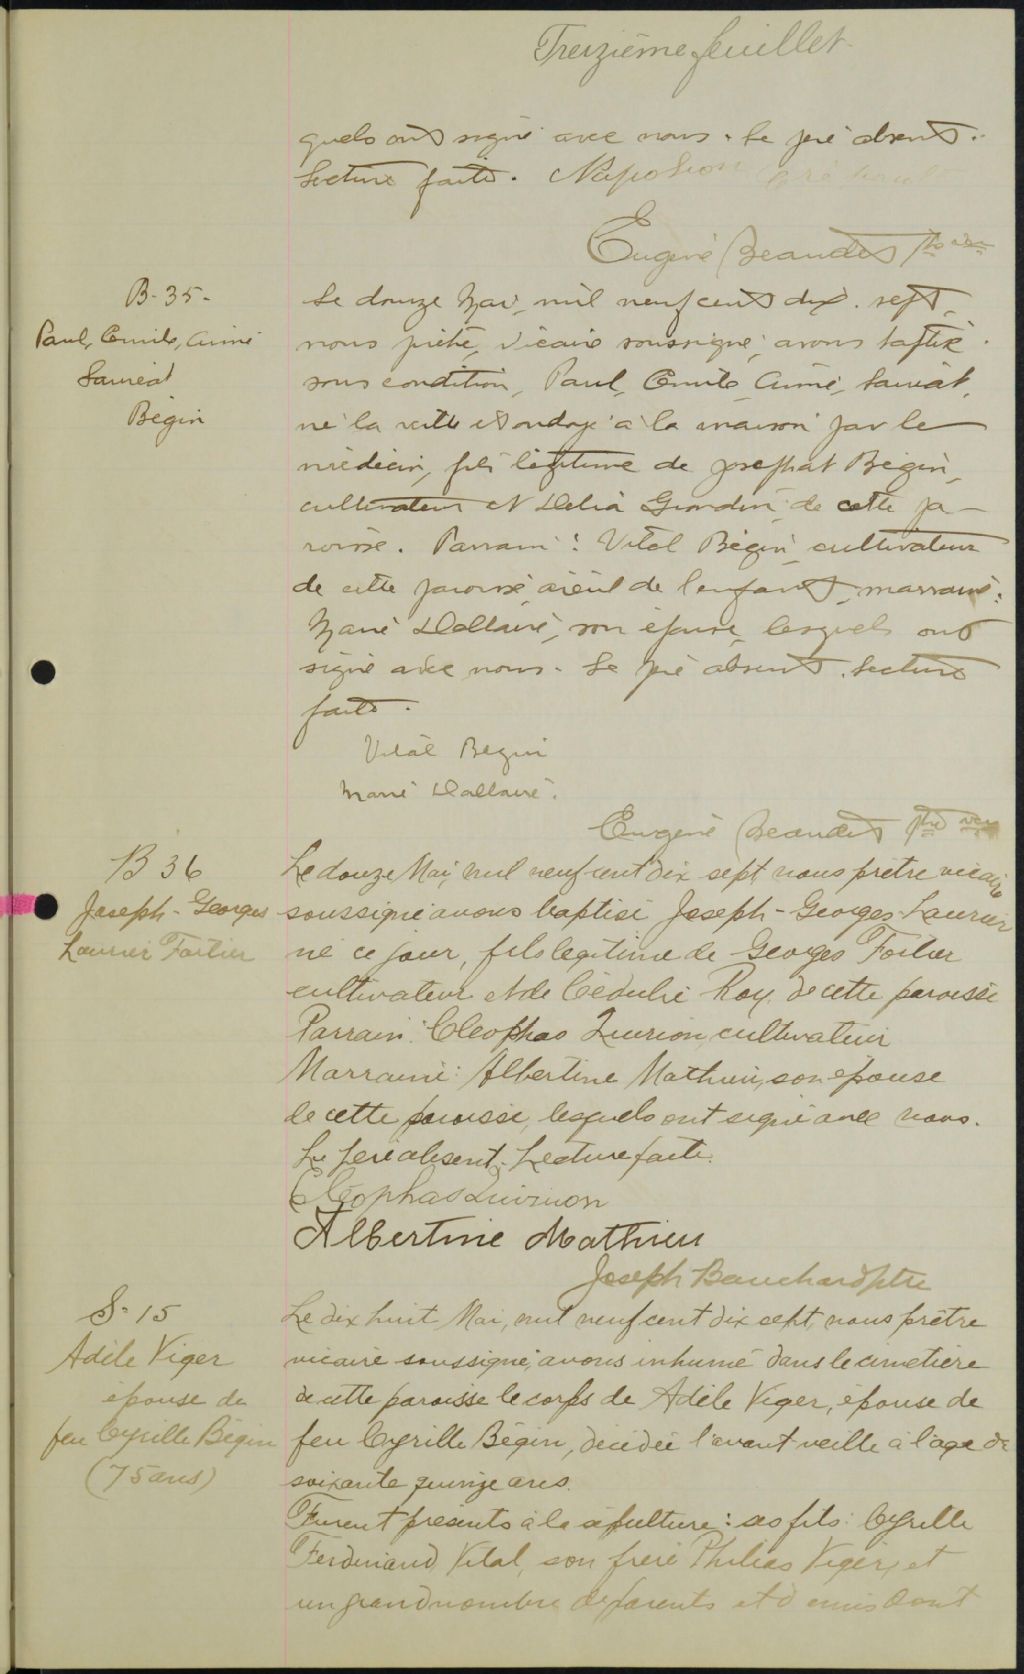 Treizième feuillet
quels ont signé avec nous. Le père absent.
Lecture faite. Napoléon
Eugène Beaudet ptre vic
B-35-
Paul, Emile, Aimé
Lauréat
Bégin
Le douze Mai, mil neuf cent dix-sept,
nous prêtre, vicaire soussigné, avons baptisé
sous condition, Paul, Emile, Aimé, Lauréat,
né la veille et ondoyé à la maison par le
médecin, fils légitime de Josephat Bégin,
cultivateur et Délia Grondin de cette pa-
roisse. Parrain: Vital Bégin cultivateur
de cette paroisse aieul de l'enfant, marraine:
Marie Dallaire, son épouse, lesquels ont
signé avec nous. Le père absent. Lecture
faite.
Vital Bégin
Marie Dallaire.
Eugène Beaudet ptre vic
B 36
Joseph-Georges
Laurier Fortier
Le douze Mai, mil neuf cent dix sept nous prêtre vicaire
soussigné avons baptisé Joseph-Georges-Laurier
né ce jour, fils légitime de Georges Fortier
cultivateur et de Cédulie Roy, de cette paroisse
Parrain: Cléophas Quirion, cultivateur
Marraine: Albertine Mathieu, son épouse
de cette paroisse, lesquels ont signé avec nous.
Le père absent. Lecture faite.
Cléophas Quirion
Albertine Mathieu
Joseph Bouchard ptre
S-15
Adèle Viger
épouse de
feu Cyrille Bégin
(75 ans)
Le dix huit Mai, mil neuf cent dix sept, nous prêtre
vicaire soussigné, avons inhumé dans le cimetière
de cette paroisse le corps de Adèle Viger, épouse de
feu Cyrille Bégin, décédée l'avant veille à l'age de
soixante quinze ans.
Furent présents à la sépulture: ses fils: Cyrille
Ferdinand, Vital, son frère Philias Viger, et
un grand nombre de parents et d'amis dont